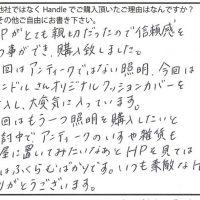 他社ではなくHandleでご購入頂いたご理由はなんですか?
その他ご自由にお書き下さい。
Pがとても親切だったので信頼感を
事ができ、購入致しました。
回はアンティークではない照明、今回は
ンドルさんオリジナルクッションカバーを
入し、大変気に入っています。
回はもう一つ照明を購入したいと
討中でアンティークのいすや雑貨も
屋に置いてみたいなぁとHPを見ては
はふくらむばかりです。いつも素敵なH
りがとうございます。